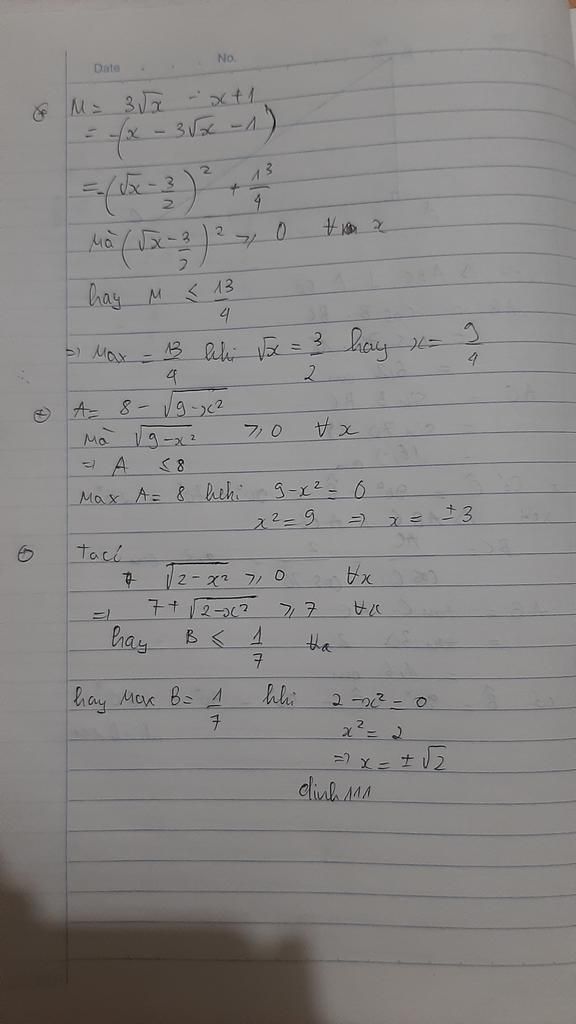 Date No.
M = 3√x - x + 1
= -(x - 3√x - 1)
= -(√x - 3/2)² + 13/4
Mà (√x - 3/2)² ≥ 0 ∀ x
hay M ≤ 13/4
=> Max = 13/4 khi √x = 3/2 hay x = 9/4
A = 8 - √(9-x²)
Mà √(9-x²) ≥ 0 ∀x
=> A ≤ 8
Max A = 8 khi 9-x² = 0
x² = 9 => x = ±3
Ta có
√(2-x²) ≥ 0 ∀x
=> 7 + √(2-x²) ≥ 7 ∀x
hay B ≤ 1/7 ∀x
hay Max B = 1/7 khi 2-x² = 0
x² = 2
=> x = ±√2